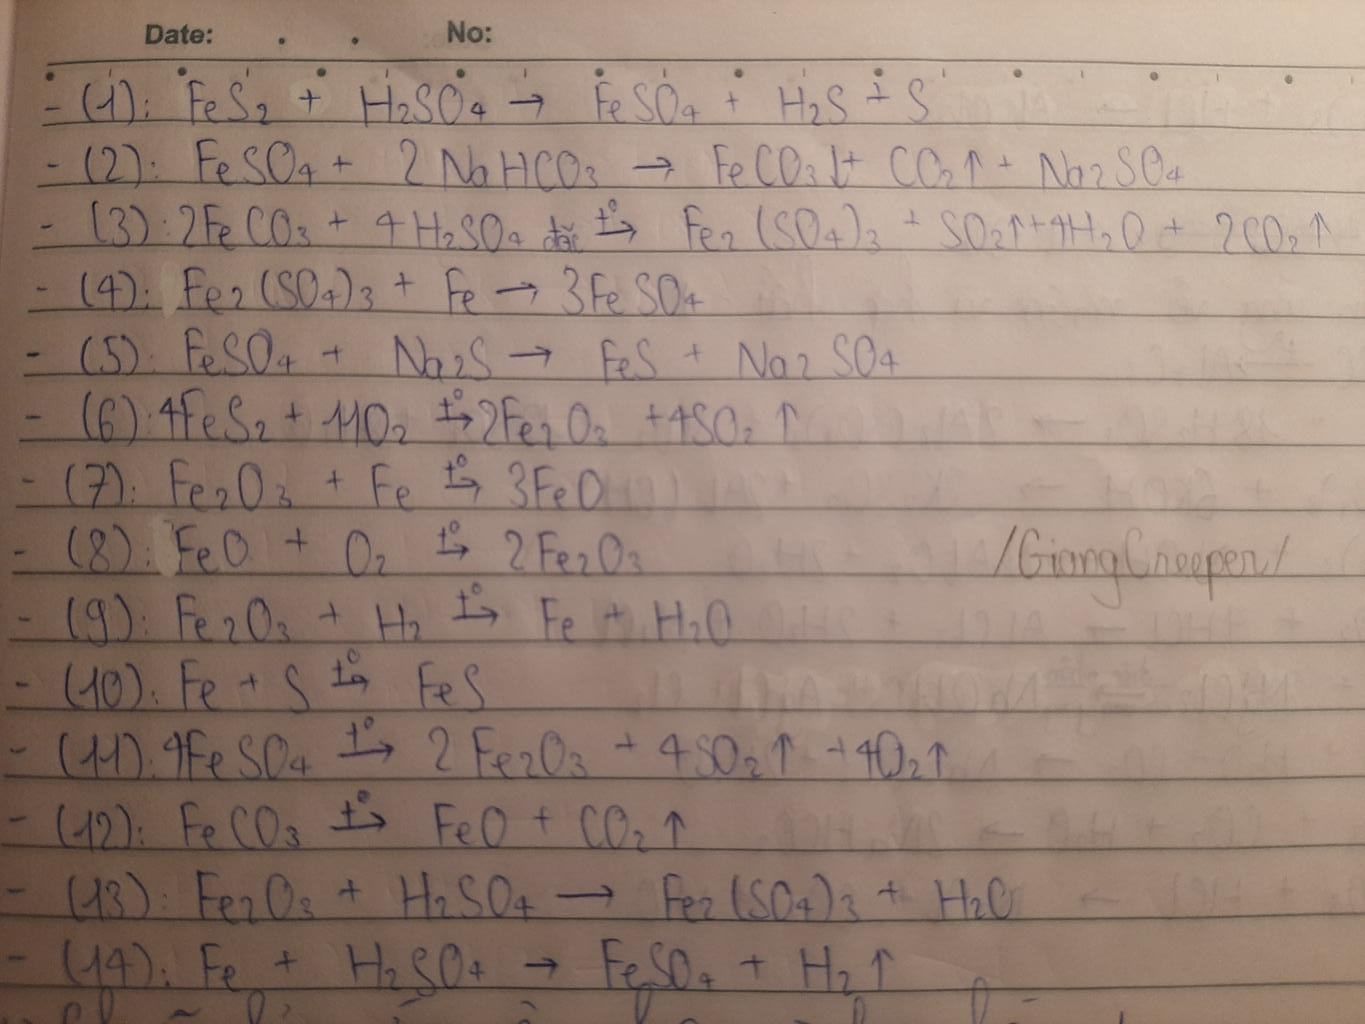 Date: . . No:
- (1): FeS₂ + H₂SO₄ → FeSO₄ + H₂S + S
- (2): FeSO₄ + 2NaHCO₃ → FeCO₃↓ + CO₂↑ + Na₂SO₄
- (3): 2FeCO₃ + 4H₂SO₄ đặc t°→ Fe₂(SO₄)₃ + SO₂↑ + 4H₂O + 2CO₂↑
- (4): Fe₂(SO₄)₃ + Fe → 3FeSO₄
- (5): FeSO₄ + Na₂S → FeS + Na₂SO₄
- (6): 4FeS₂ + 11O₂ t°→ 2Fe₂O₃ + 4SO₂↑
- (7): Fe₂O₃ + Fe t°→ 3FeO
- (8): FeO + O₂ t°→ 2Fe₂O₃ /GiangCreeper/
- (9): Fe₂O₃ + H₂ t°→ Fe + H₂O
- (10): Fe + S t°→ FeS
- (11): 4FeSO₄ t°→ 2Fe₂O₃ + 4SO₂↑ + 4O₂↑
- (12): FeCO₃ t°→ FeO + CO₂↑
- (13): Fe₂O₃ + H₂SO₄ → Fe₂(SO₄)₃ + H₂O
- (14): Fe + H₂SO₄ → FeSO₄ + H₂↑